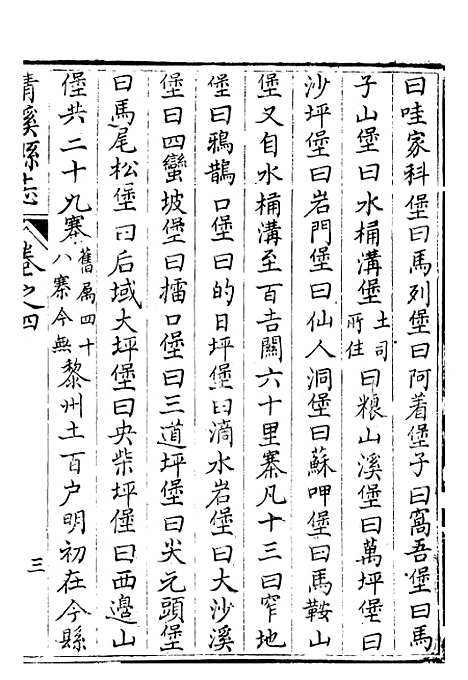 曰哇家科堡曰馬列堡曰阿着堡子曰窩吾堡曰馬
子山堡曰水桶溝堡土司所住曰粮山溪堡曰萬坪堡曰
沙坪堡曰岩門堡曰仙人洞堡曰蘇呷堡曰馬鞍山
堡又自水桶溝至百吉關六十里寨凡十三曰窄地
堡曰鴉鵲口堡曰的日坪堡曰滴水岩堡曰大沙溪
堡曰四蠻坡堡曰擂口堡曰三道坪堡曰尖元頭堡
曰馬尾松堡曰后域大坪堡曰央柴坪堡曰西邊山
堡共二十九寨舊属四十八寨今無黎州土百户明初在今縣
清溪縣志 卷之四
三